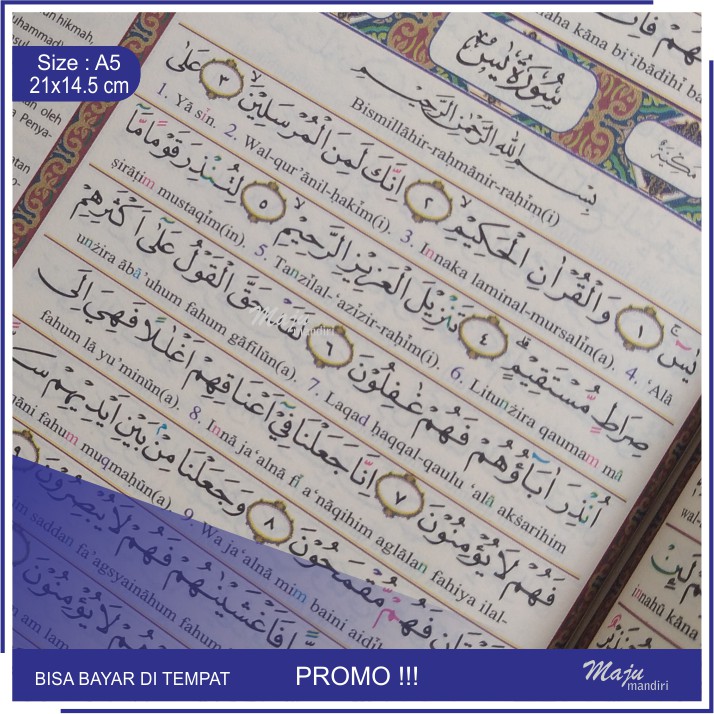 Size : A5
21x14.5 cm
سُوْرَةُ يٰسٓ
مَكِّيَّةٌ
بِسْمِ اللهِ الرَّحْمٰنِ الرَّحِيْمِ
Bismillāhir-raḥmānir-raḥīm(i)
يٰسۤ ۚ ١ وَالْقُرْاٰنِ الْحَكِيْمِۙ ٢ اِنَّكَ لَمِنَ الْمُرْسَلِيْنَۙ ٣ عَلٰى
1. Yā sīn. 2. Wal-qur'ānil-ḥakīm(i). 3. Innaka laminal-mursalīn(a). 4. 'Alā
صِرَاطٍ مُّسْتَقِيْمٍۗ ٤ تَنْزِيْلَ الْعَزِيْزِ الرَّحِيْمِۙ ٥ لِتُنْذِرَ قَوْمًا مَّآ
ṣirāṭim mustaqīm(in). 5. Tanzīlal-'azīzir-raḥīm(i). 6. Litunżira qaumam mā
اُنْذِرَ اٰبَاۤؤُهُمْ فَهُمْ غٰفِلُوْنَ ٦ لَقَدْ حَقَّ الْقَوْلُ عَلٰٓى اَكْثَرِهِمْ
unżira ābā'uhum fahum gāfilūn(a). 7. Laqad ḥaqqal-qaulu 'alā akṡarihim
فَهُمْ لَا يُؤْمِنُوْنَ ٧ اِنَّا جَعَلْنَا فِيْٓ اَعْنَاقِهِمْ اَغْلٰلًا فَهِيَ اِلَى
fahum lā yu'minūn(a). 8. Innā ja'alnā fī a'nāqihim aglālan fahiya ilal-
فَهُمْ مُّقْمَحُوْنَ ٨ وَجَعَلْنَا مِنْۢ بَيْنِ اَيْدِيْهِمْ
fahum muqmaḥūn(a). 9. Wa ja'alnā mim baini aidī
فَاَغْشَيْنٰهُمْ فَهُمْ لَا يُبْصِرُوْنَ
saddan fa'agsyaināhum fahum
لَا يُؤْمِنُوْنَ
am lam
Maju
mandiri
BISA BAYAR DI TEMPAT
PROMO !!!
Maju
mandiri